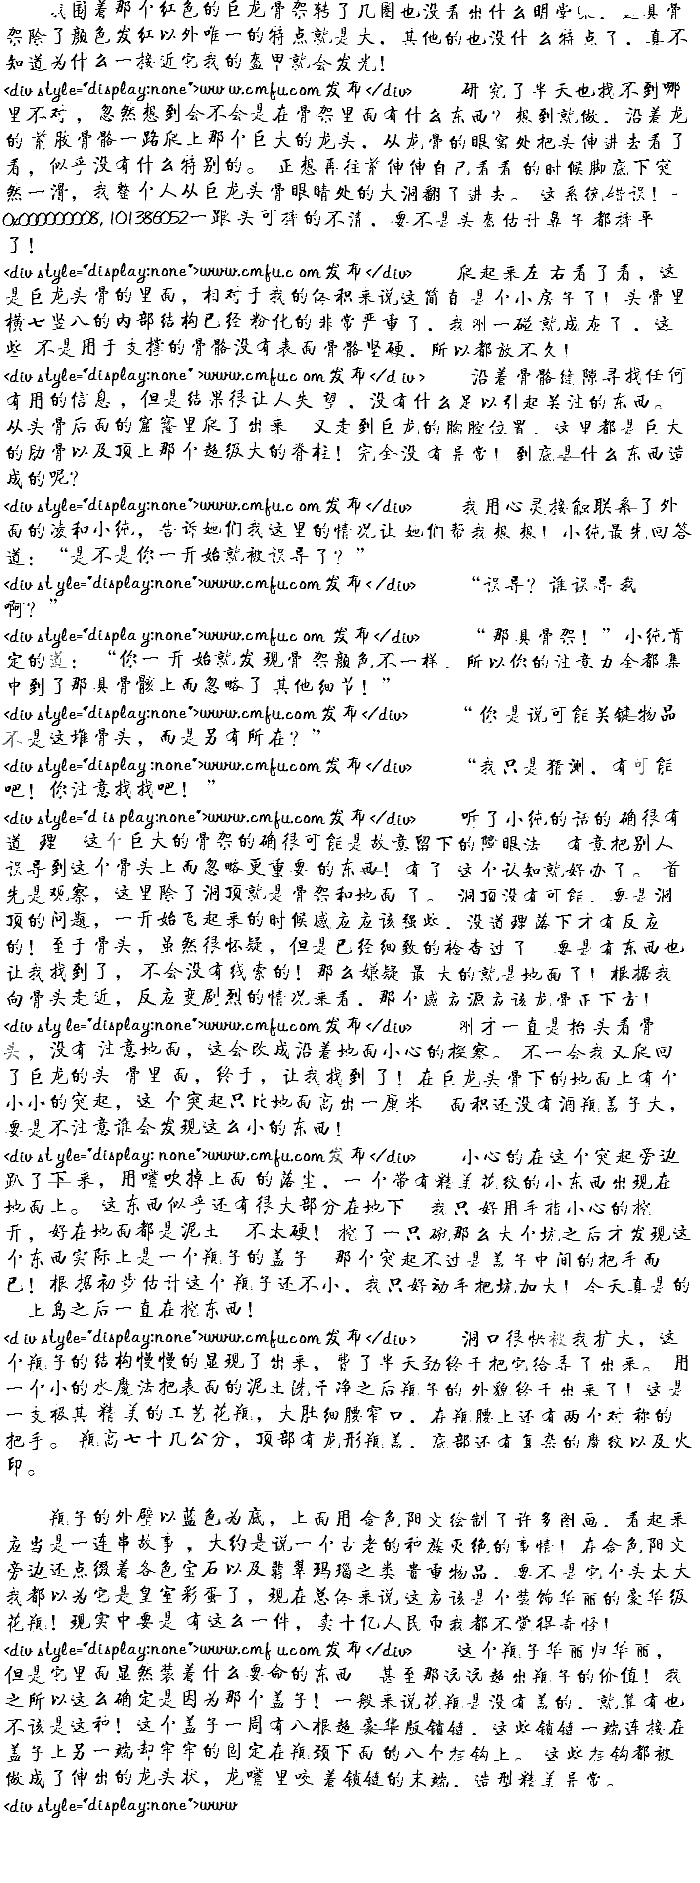 我围着那个红色的巨龙骨架转了几圈也没看出什么明堂来。这具骨
架除了颜色发红以外唯一的特点就是大，其他的也没什么特点了，真不
知道为什么一接近它我的盔甲就会发光！
<div style="display:none">www.cmfu.com发布</div>　　研究了半天也找不到哪
里不对，忽然想到会不会是在骨架里面有什么东西？想到就做，沿着龙
的前肢骨骼一路爬上那个巨大的龙头，从龙骨的眼窝处把头伸进去看了
看，似乎没有什么特别的。正想再往前伸伸自己看看的时候脚底下突
然一滑，我整个人从巨龙头骨眼睛处的大洞翻了进去。这系统错误！-
0x000000008,101386052一跟头可摔的不清，要不是头盔估计鼻子都摔平
了！
<div style="display:none">www.cmfu.com发布</div>　　爬起来左右看了看，这
是巨龙头骨的里面，相对于我的体积来说这简直是个小房子了！头骨里
横七竖八的内部结构已经粉化的非常严重了，我刚一碰就成灰了，这
些不是用于支撑的骨骼没有表面骨骼坚硬，所以都放不久！
<div style="display:none">www.cmfu.com发布</div>　　沿着骨骼缝隙寻找任何
有用的信息，但是结果很让人失望，没有什么足以引起关注的东西。
从头骨后面的窟窿里爬了出来　又走到巨龙的胸腔位置，这里都是巨大
的肋骨以及顶上那个超级大的脊柱！完全没有异常！到底是什么东西造
成的呢？
<div style="display:none">www.cmfu.com发布</div>　　我用心灵接触联系了外
面的凌和小纯，告诉她们我这里的情况让她们帮我想想！小纯最先回答
道：“是不是你一开始就被误导了？”
<div style="display:none">www.cmfu.com发布</div>　　“误导？谁误导我
啊？”
<div style="display:none">www.cmfu.com发布</div>　　“那具骨架！”小纯肯
定的道：“你一开始就发现骨架颜色不一样，所以你的注意力全都集
中到了那具骨骸上而忽略了其他细节！”
<div style="display:none">www.cmfu.com发布</div>　　“你是说可能关键物品
不是这堆骨头，而是另有所在？”
<div style="display:none">www.cmfu.com发布</div>　　“我只是猜测，有可能
吧！你注意找找吧！”
<div style="display:none">www.cmfu.com发布</div>　　听了小纯的话的确很有
道理　这个巨大的骨架的确很可能是故意留下的障眼法　有意把别人
误导到这个骨头上而忽略更重要的东西！有了这个认知就好办了。首
先是观察，这里除了洞顶就是骨架和地面了。洞顶没有可能，要是洞
顶的问题，一开始飞起来的时候感应应该强些，没道理落下才有反应
的！至于骨头，虽然很怀疑，但是已经细致的检查过了　要是有东西也
让我找到了，不会没有线索的！那么嫌疑最大的就是地面了！根据我
向骨头走近，反应变剧烈的情况来看，那个感应源应该龙骨正下方！
<div style="display:none">www.cmfu.com发布</div>　　刚才一直是抬头看骨
头，没有注意地面，这会改成沿着地面小心的探察。不一会我又爬回
了巨龙的头骨里面，终于，让我找到了！在巨龙头骨下的地面上有个
小小的突起，这个突起只比地面高出一厘米　面积还没有酒瓶盖子大，
要是不注意谁会发现这么小的东西！
<div style="display:none">www.cmfu.com发布</div>　　小心的在这个突起旁边
趴了下来，用嘴吹掉上面的落尘，一个带有精美花纹的小东西出现在
地面上。这东西似乎还有很大部分在地下　我只好用手指小心的挖
开，好在地面都是泥土　不太硬！挖了一只碗那么大个坑之后才发现这
个东西实际上是一个瓶子的盖子　那个突起不过是盖子中间的把手而
已！根据初步估计这个瓶子还不小，我只好动手把坑加大！今天真是的
　上岛之后一直在挖东西！
<div style="display:none">www.cmfu.com发布</div>　　洞口很快被我扩大，这
个瓶子的结构慢慢的显现了出来，费了半天劲终于把它给弄了出来。用
一个小的水魔法把表面的泥土洗干净之后瓶子的外貌终于出来了！这是
一支极其精美的工艺花瓶，大肚细腰窄口，在瓶腰上还有两个对称的
把手。瓶高七十几公分，顶部有龙形瓶盖，底部还有复杂的魔纹以及火
印。

　　瓶子的外壁以蓝色为底，上面用金色阳文绘制了许多图画，看起来
应当是一连串故事，大约是说一个古老的种族灭绝的事情！在金色阳文
旁边还点缀着各色宝石以及翡翠玛瑙之类贵重物品，要不是它个头太大
我都以为它是皇室彩蛋了，现在总体来说这应该是个装饰华丽的豪华级
花瓶！现实中要是有这么一件，卖十亿人民币我都不觉得奇怪！
<div style="display:none">www.cmfu.com发布</div>　　这个瓶子华丽归华丽，
但是它里面显然装着什么要命的东西　甚至那远远超出瓶子的价值！我
之所以这么确定是因为那个盖子！一般来说花瓶是没有盖的，就算有也
不该是这种！这个盖子一周有八根超豪华版锁链，这些锁链一端连接在
盖子上另一端却牢牢的固定在瓶颈下面的八个挂钩上。这些挂钩都被
做成了伸出的龙头状，龙嘴里咬着锁链的末端，造型精美异常。
<div style="display:none">www